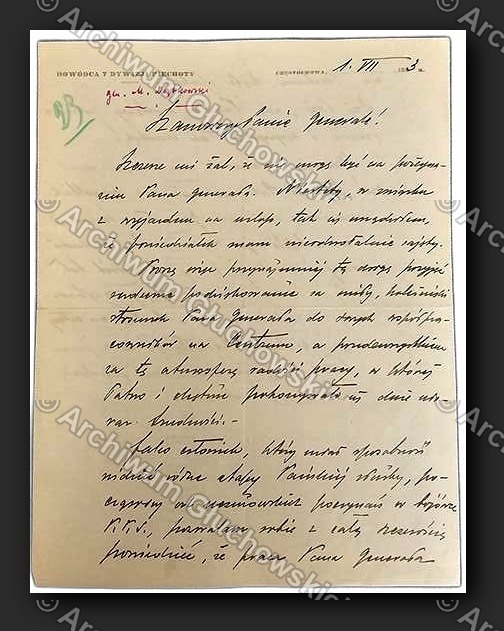 DOWÓDCA 7 DYWIZJI PIECHOTY
CZĘSTOCHOWA, 1. VII 193 3 r.
gen. M. Dąbkowski
Szanowny Panie Generale!
Szczerze mi żal, że nie mogę być na pożegna-
niu Pana Generała. Niestety, w związku
z wyjazdem na urlop, tak się urządziłem,
że poniedziałek mam nieodwołalnie zajęty.
Proszę więc przynajmniej tą drogą przyjąć
serdeczne podziękowanie za miły, koleżeński
stosunek Pana Generała do swych współpra-
cowników na Centrum, a przedewszystkiem
za tę atmosferę radości pracy, w której
łatwo i chętnie pokonywało się duże nie-
raz trudności.-
Jako człowiek, który miał sposobność
widzieć różne etapy Pańskiej służby, po-
cząwszy od uczniowskich poczynań w
, pozwalam sobie z całą szczerością
powiedzieć, że praca Pana Generała
Archiwum Głuchowskich